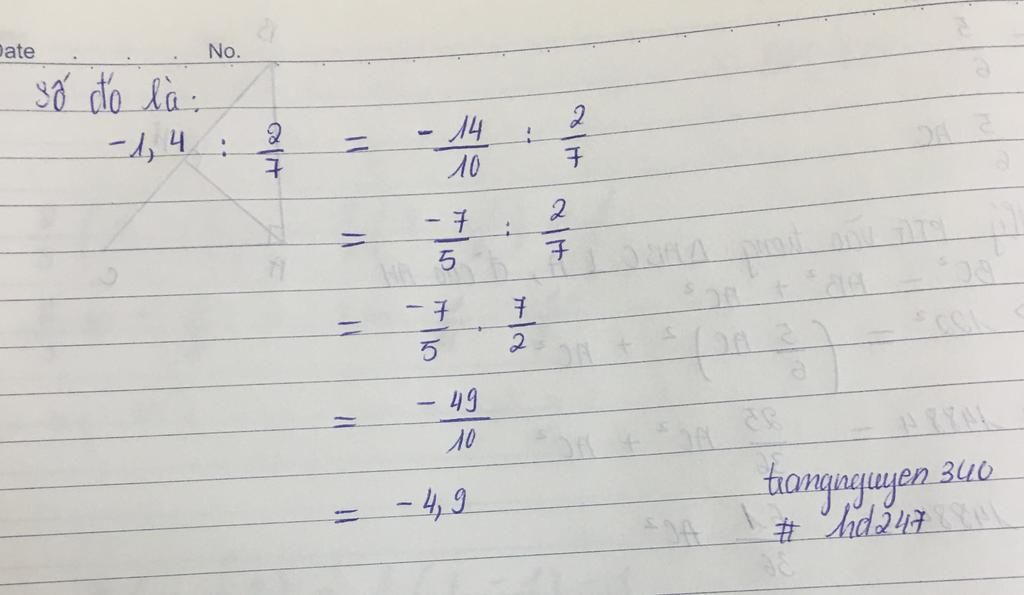 Date . . . . No.
Số đó là:
-1,4 : 2/7 = -14/10 : 2/7
= -7/5 : 2/7
= -7/5 . 7/2
= -49/10
= -4,9
trangnguyen 340
# hd247